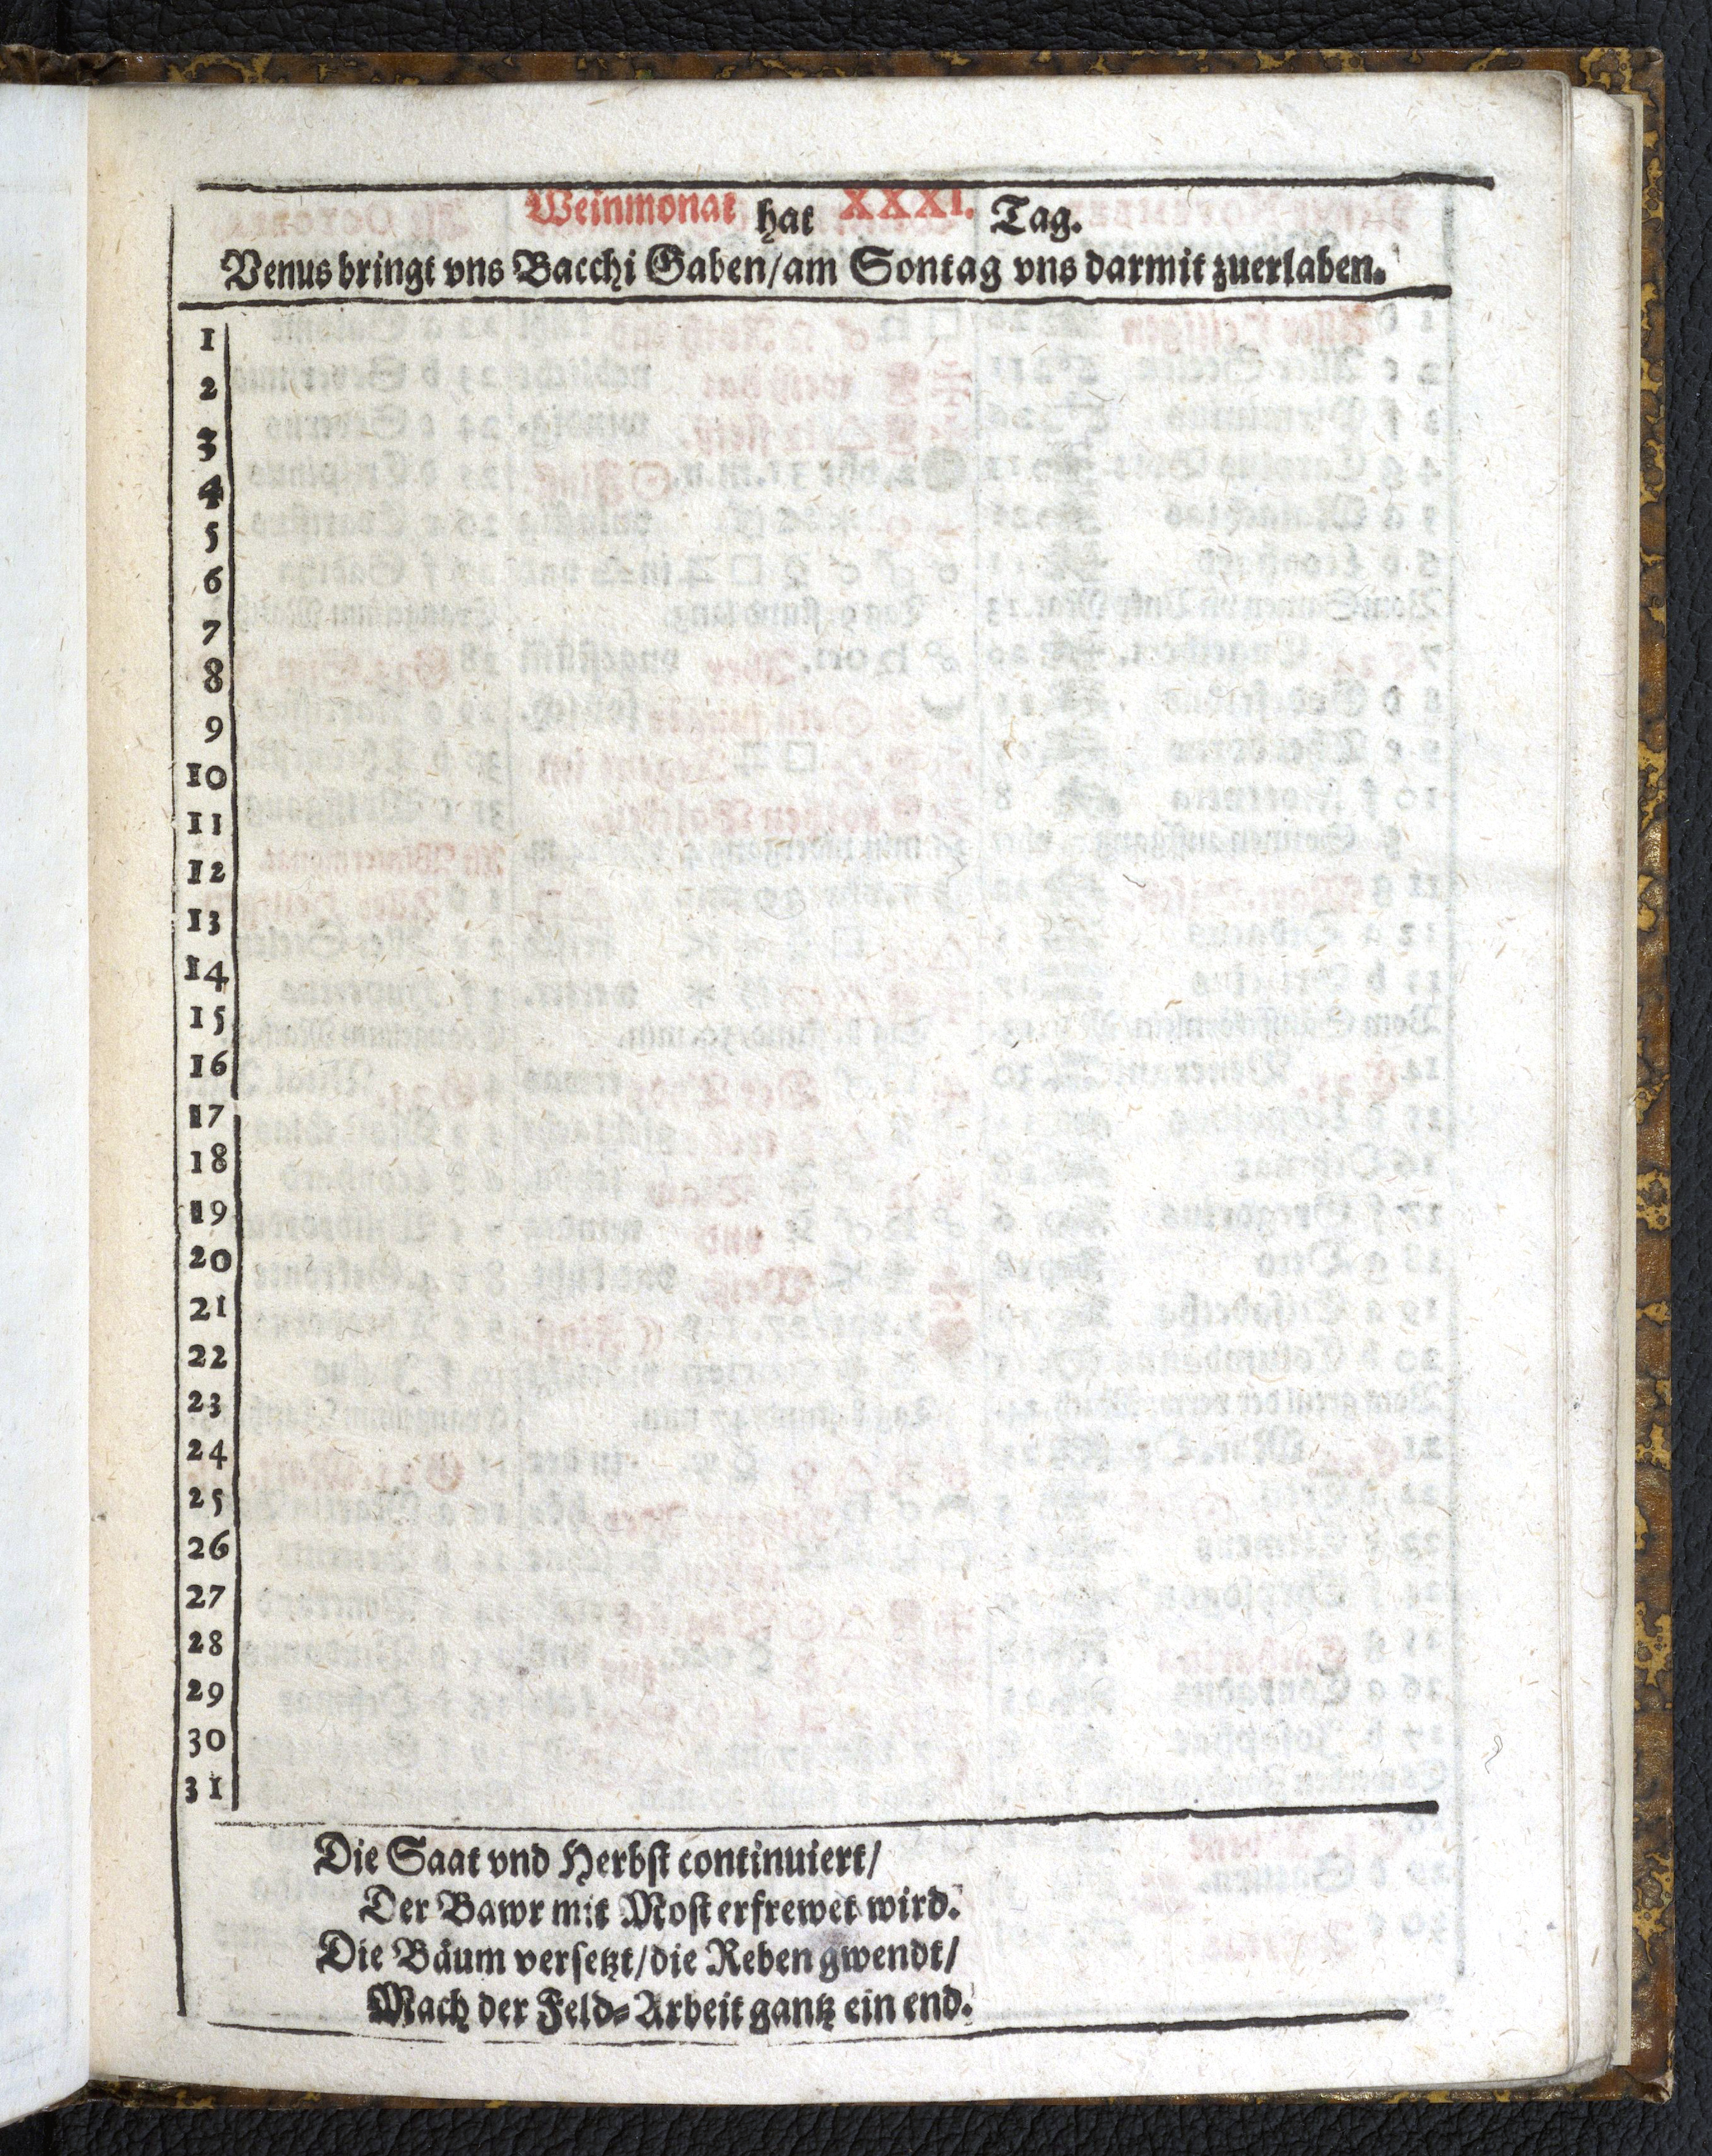 Weinmonat hat XXXI. Tag.
Venus bringt vns Bacchi Gaben/am Sontag vns darmit zuerlaben.
1
2
3
4
5
6
7
8
9
10
11
12
13
14
15
16
17
18
19
20
21
22
23
24
25
26
27
28
29
30
31
Die Saat vnd Herbst continuiert/
Der Bawr mit Most erfrewet wird.
Die Bäum versetzt/die Reben gwendt/
Mach der Feld-Arbeit gantz ein end.